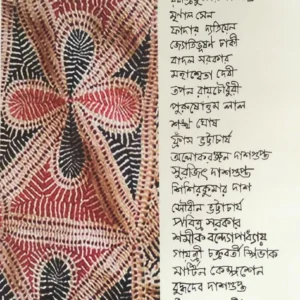 মৃণাল সেন
ফাদার দ্যতিয়েন
জ্যোতির্ভূষণ চাকী
বাদল সরকার
মহাশ্বেতা দেবী
তপন রায়চৌধুরী
পুরুষোত্তম লাল
শঙ্খ ঘোষ
ফ্রাঁস ভট্টাচার্য
অলোকরঞ্জন দাশগুপ্ত
সুরজিৎ দাশগুপ্ত
শিশিরকুমার দাশ
সৌরীন ভট্টাচার্য
পবিত্র সরকার
শমীক বন্দ্যোপাধ্যায়
গায়ত্রী চক্রবর্তী স্পিভাক
মার্টিন কেম্পশেন
বুদ্ধদেব দাশগুপ্ত